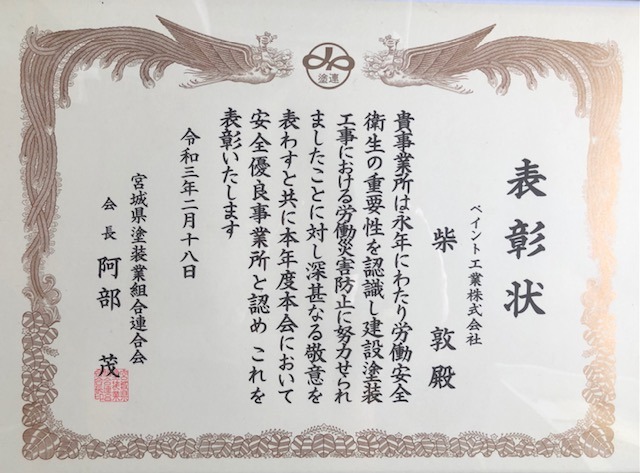 表彰状
ペイント工業株式会社
柴 敦 殿
貴事業所は永年にわたり労働安全
衛生の重要性を認識し建設塗装
工事における労働災害防止に努力せられ
ましたことに対し深甚なる敬意を
表わすと共に本年度本会において
安全優良事業所と認め これを
表彰いたします
令和三年二月十八日
宮城県塗装業組合連合会
会長 阿部 茂
塗連